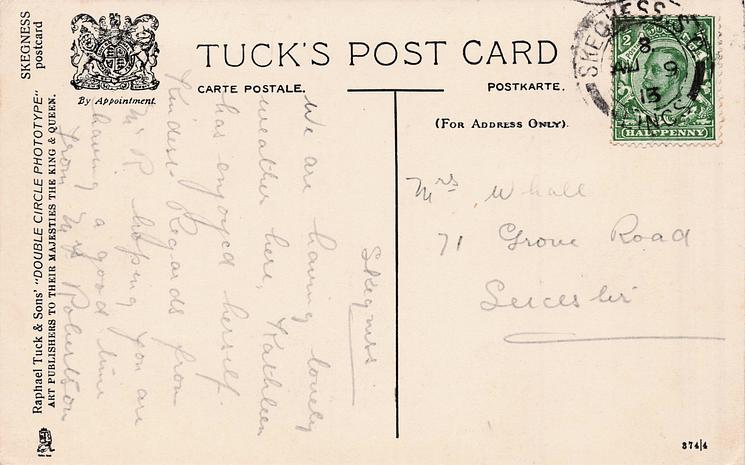 SKEGNESS
postcard
Raphael Tuck & Sons' "DOUBLE CIRCLE PHOTOTYPE"
ART PUBLISHERS TO THEIR MAJESTIES THE KING & QUEEN.
By Appointment.
TUCK'S POST CARD
CARTE POSTALE.
POSTKARTE.
(For Address Only).
SKEGNESS S.O
8
9
13
LINCS
HALFPENNY
Skegness
We are having lovely
weather here, Kathleen
has enjoyed herself.
Kindest Regards from
Mr R hoping you are
having a good time
from Mrs Robertson
Mrs Whall
71 Grove Road
Leicester
374/4